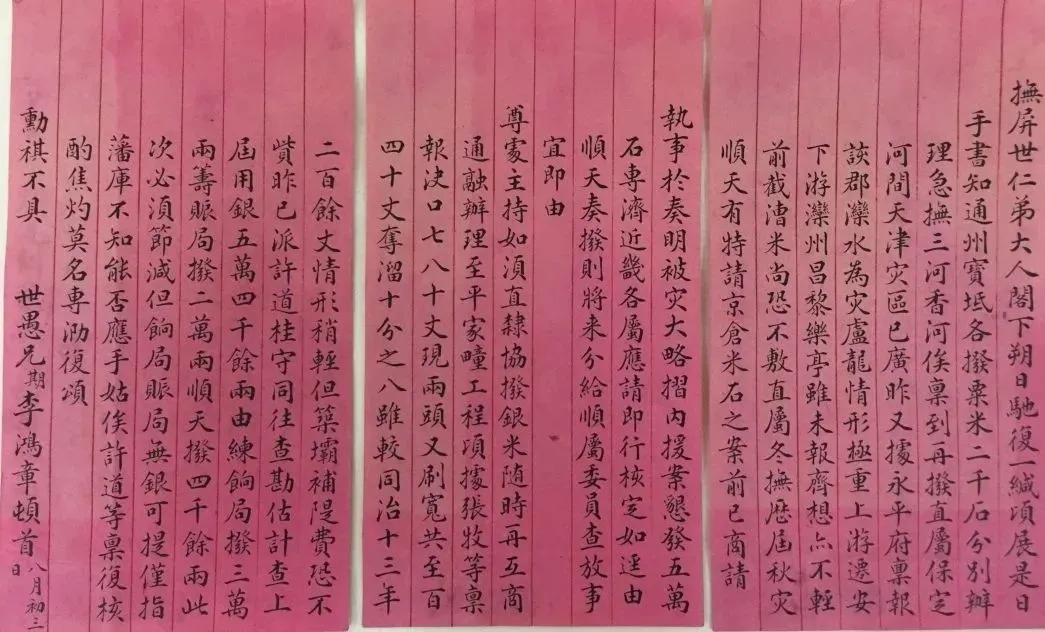 撫屏世仁弟大人閣下朔日馳復一緘頃展是日
手書知通州寶坻各撥粟米二千石分別辦
理急撫三河香河俟稟到再撥直屬保定
河間天津灾區已廣昨又據永平府稟報
該郡灤水為灾盧龍情形極重上游遷安
下游灤州昌黎樂亭雖未報齊想亦不輕
前截漕米尚恐不敷直屬冬撫歷屆秋灾
順天有特請京倉米石之案前已商請
執事於奏明被灾大略摺內援案懇發五萬
石專濟近畿各屬應請即行核定如逕由
順天奏撥則將来分給順屬委員查放事
宜即由
尊處主持如須直隸協撥銀米随時再互商
通融辦理至平家疃工程頃據張牧等稟
報决口七八十丈現兩頭又刷寬共至百
四十丈奪溜十分之八雖較同治十三年
二百餘丈情形稍輕但築壩補隄費恐不
貲昨已派許道桂守同往查勘估計查上
屆用銀五萬四千餘兩由練餉局撥三萬
兩籌賑局撥二萬兩順天撥四千餘兩此
次必須節減但餉局賑局無銀可提僅指
藩庫不知能否應手姑俟許道等稟復核
酌焦灼莫名專泐復頌
勳祺不具
世愚兄期李鴻章頓首八月初三日